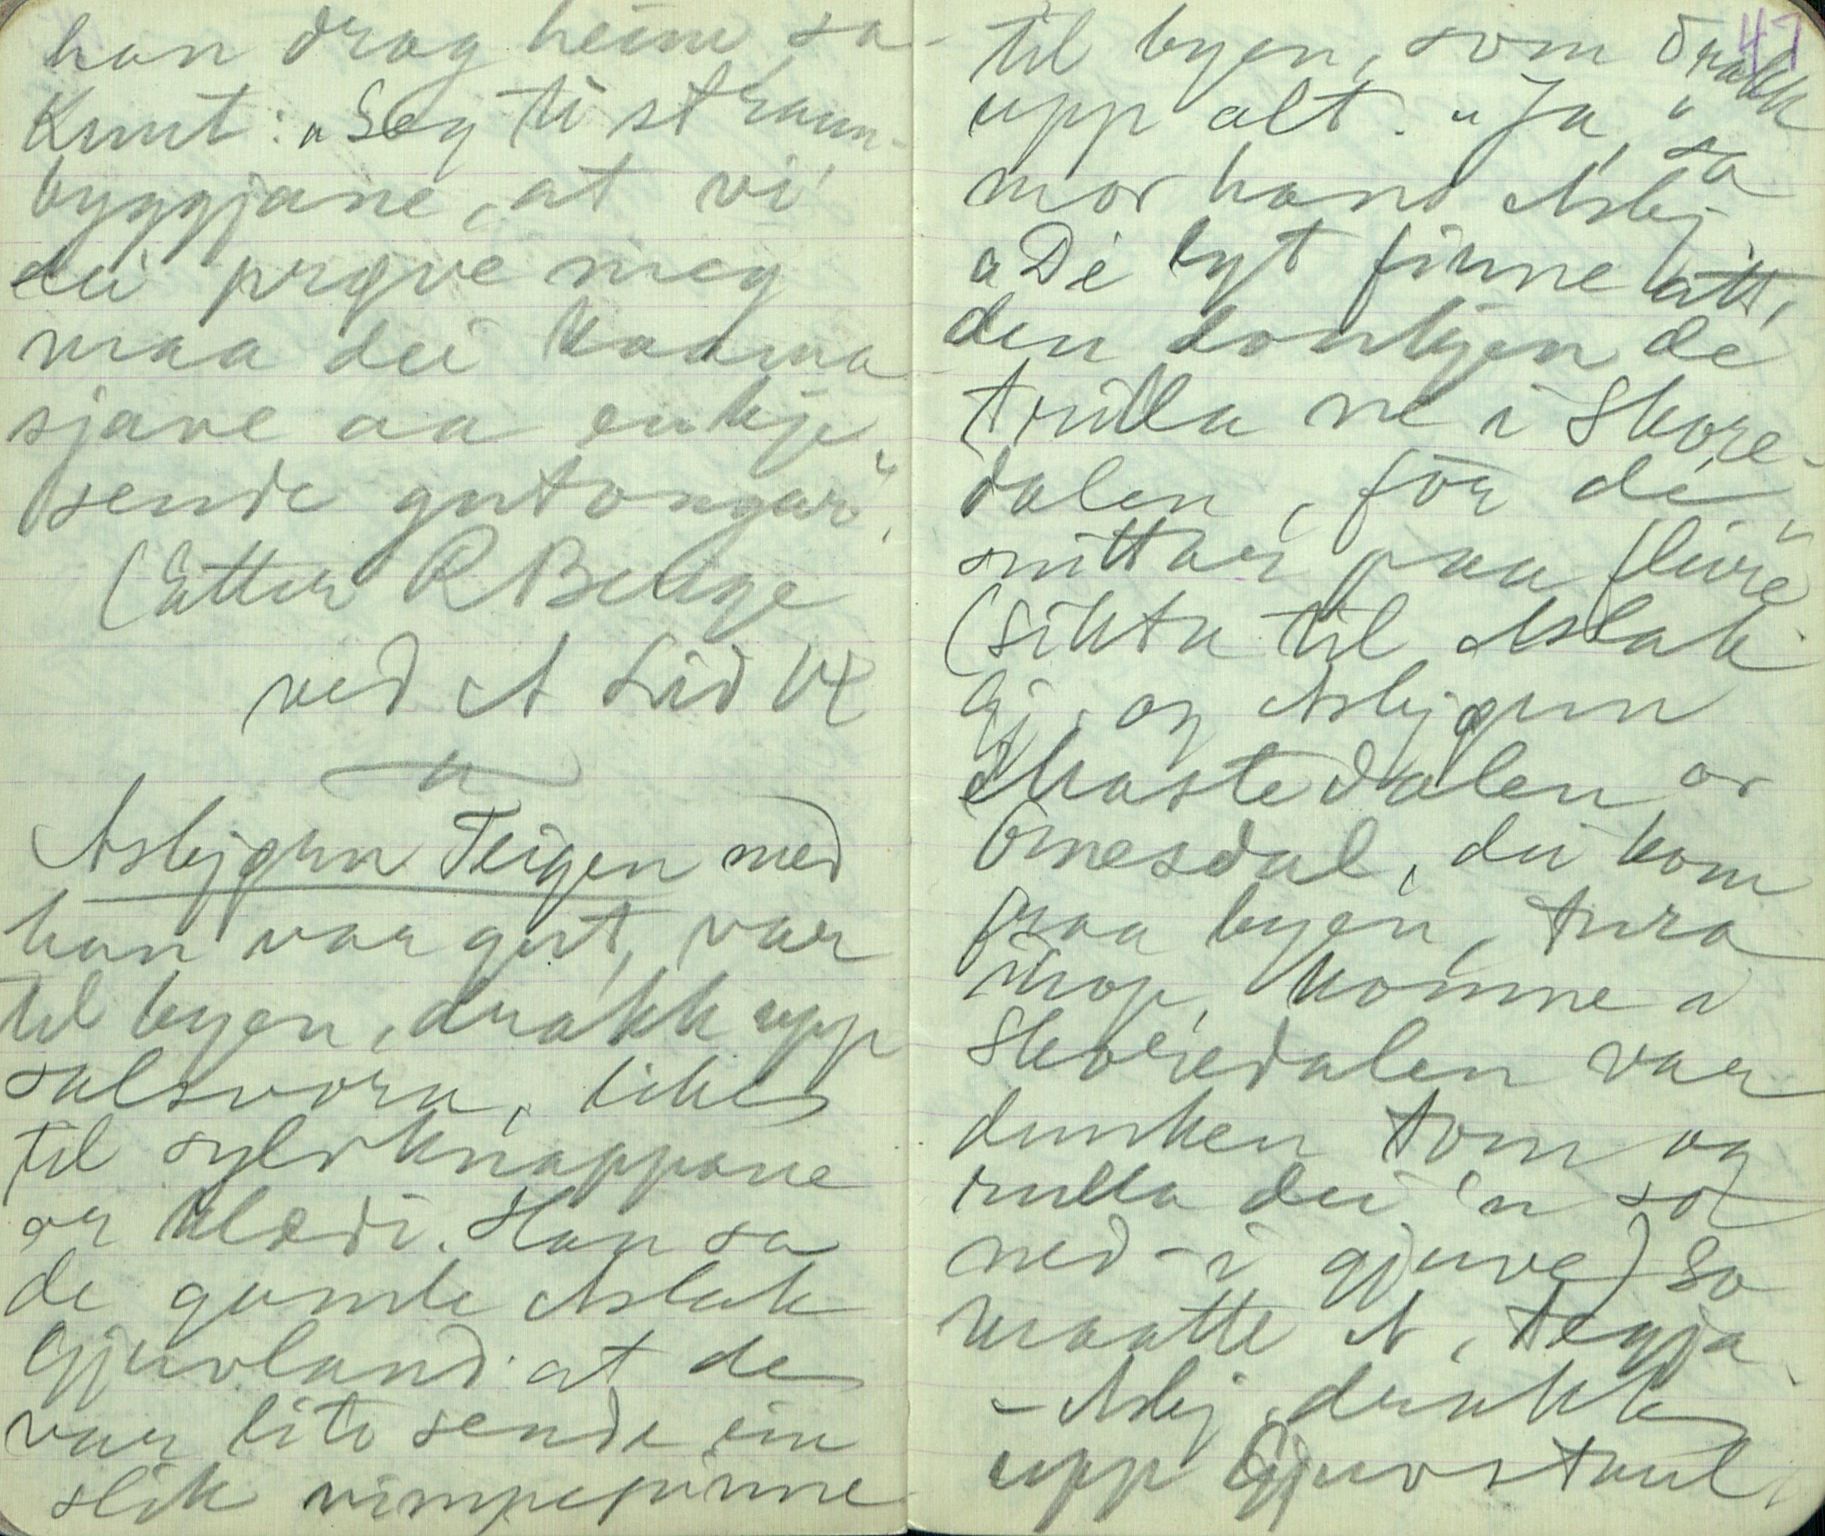 han drog heim sa
Knut: "Seg ti straum-
byggjane, at vi
dei prøve meg
maa dei koma
sjave aa enkje
sende gutongar".
(Etter R Berge
ved A Lid VE
Asbjørn Teigen med
han var gut, var
til byen, drakk upp
salsvora, likes
til sylvknappane
or klædi. Han sa
de gamle Aslak
Gjuvland at de
var lite sende ein
slik vimpepinne
47
til byen, som drakk
upp alt. "Ja," sa
mor hans Asbj.
"De lyt finne att,
den donkjen de
trilla ne i Skore-
dalen, før de
snittar paa fleire"
(sikta til Aslak
Gj. og Asbjørn
Kastedalen or
Omesdal, dei kom
fraa byen, tura
ihop, komne i
Skoredalen var
dunken tom og
rulla dei 'n so
ned i gjuve) So
maatte A, tegja.
- Asbj. drakk
upp Gjuvstaul